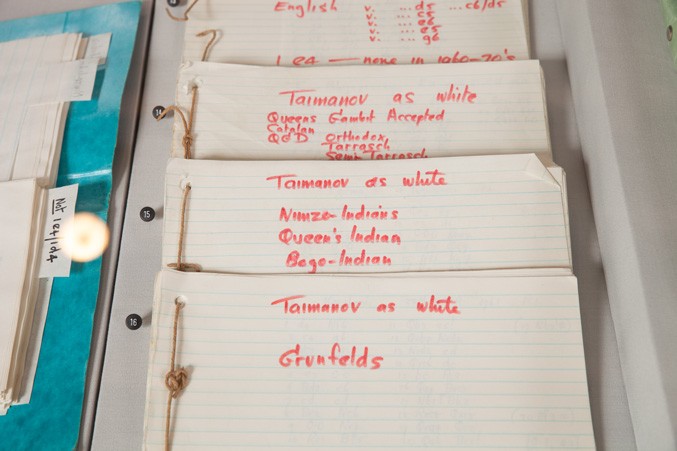 English v. ...d5 ...c6/d5
v. ...c5
v. ...e6
v. ...e5
v. ...g6
1 e4 — none in 1960-70's
14
Taimanov as white
Queens Gambit Accepted
Catalan
QGD Orthodox,
Tarrasch
Semi-Tarrasch
15
Taimanov as white
Nimzo-Indians
Queen's Indian
Bogo-Indian
16
Taimanov as white
Grunfelds
Not 1e4/1d4